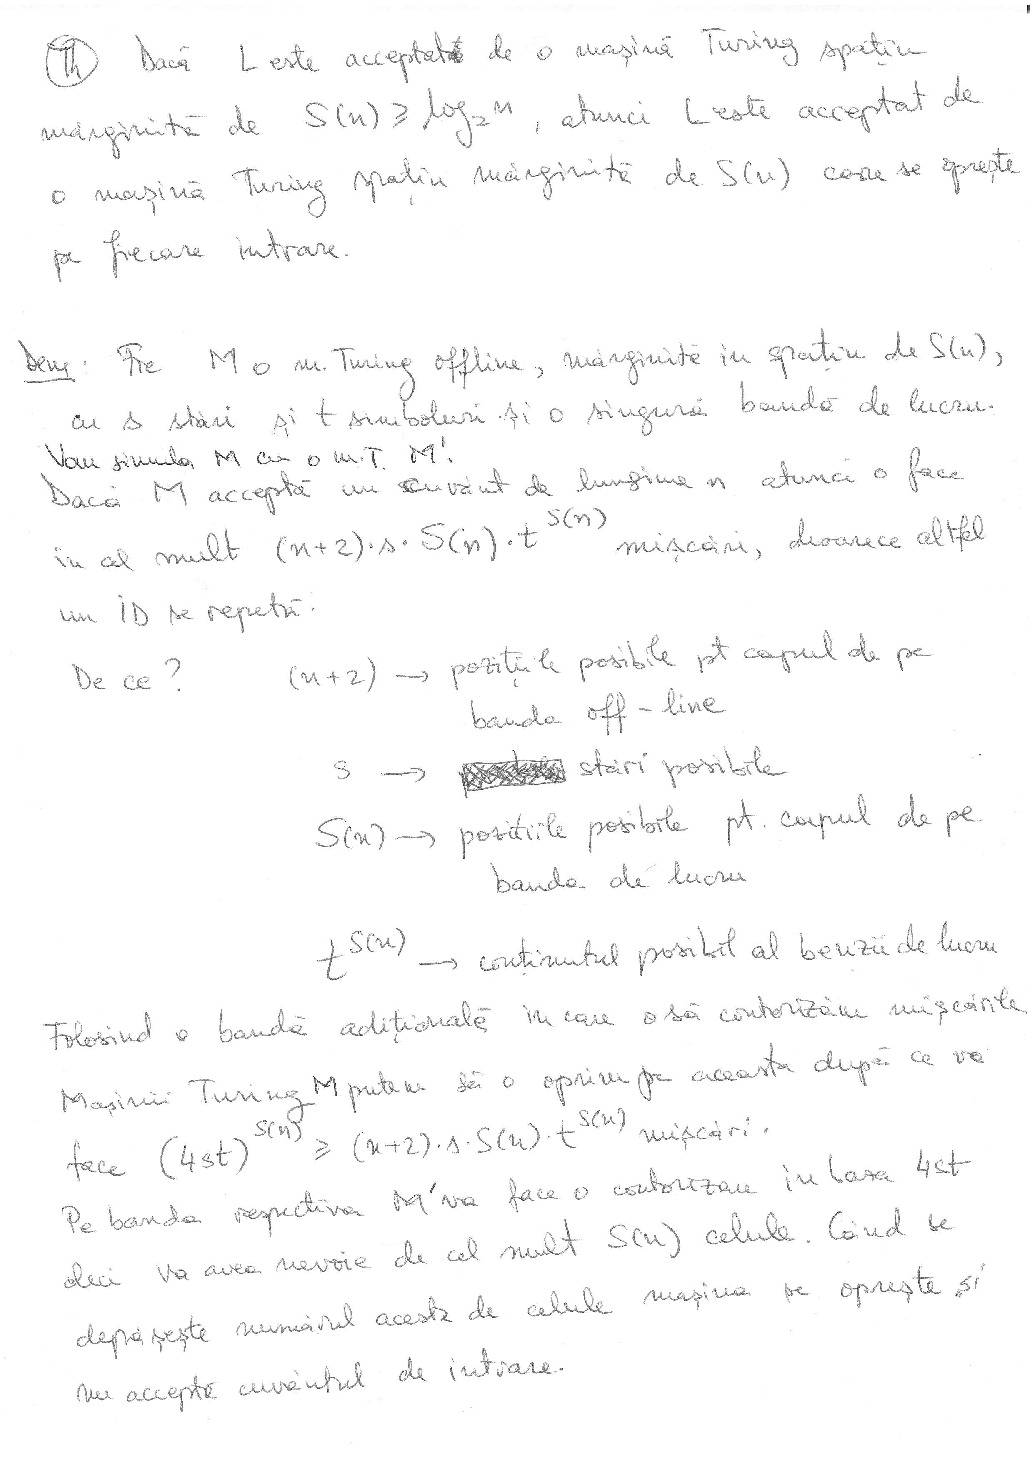 Th Dacă L este acceptat de o mașină Turing spațiu
mărginită de S(n) ≥ log₂n, atunci L este acceptat de
o mașină Turing spațiu mărginită de S(n) care se oprește
pe fiecare intrare.
Dem: Fie M o m. Turing offline, mărginită în spațiu de S(n),
cu s stări și t simboluri și o singură bandă de lucru.
Vom simula M cu o m.T. M'.
Dacă M acceptă un cuvânt de lungime n atunci o face
în cel mult (n+2)·s·S(n)·t^S(n) mișcări, deoarece altfel
un ID se repetă.
De ce? (n+2) → pozițiile posibile pt capul de pe
banda off-line
s → stări posibile
S(n) → pozițiile posibile pt. capul de pe
banda de lucru
t^S(n) → conținutul posibil al benzii de lucru
Folosind o bandă adițională în care o să contorizăm mișcările
Mașinii Turing M putem să o oprim pe aceasta după ce va
face (4st)^S(n) ≥ (n+2)·s·S(n)·t^S(n) mișcări.
Pe banda respectiva M' va face o contorizare în baza 4st
deci va avea nevoie de cel mult S(n) celule. Când se
depășește numărul acesta de celule mașina se oprește și
nu acceptă cuvântul de intrare.